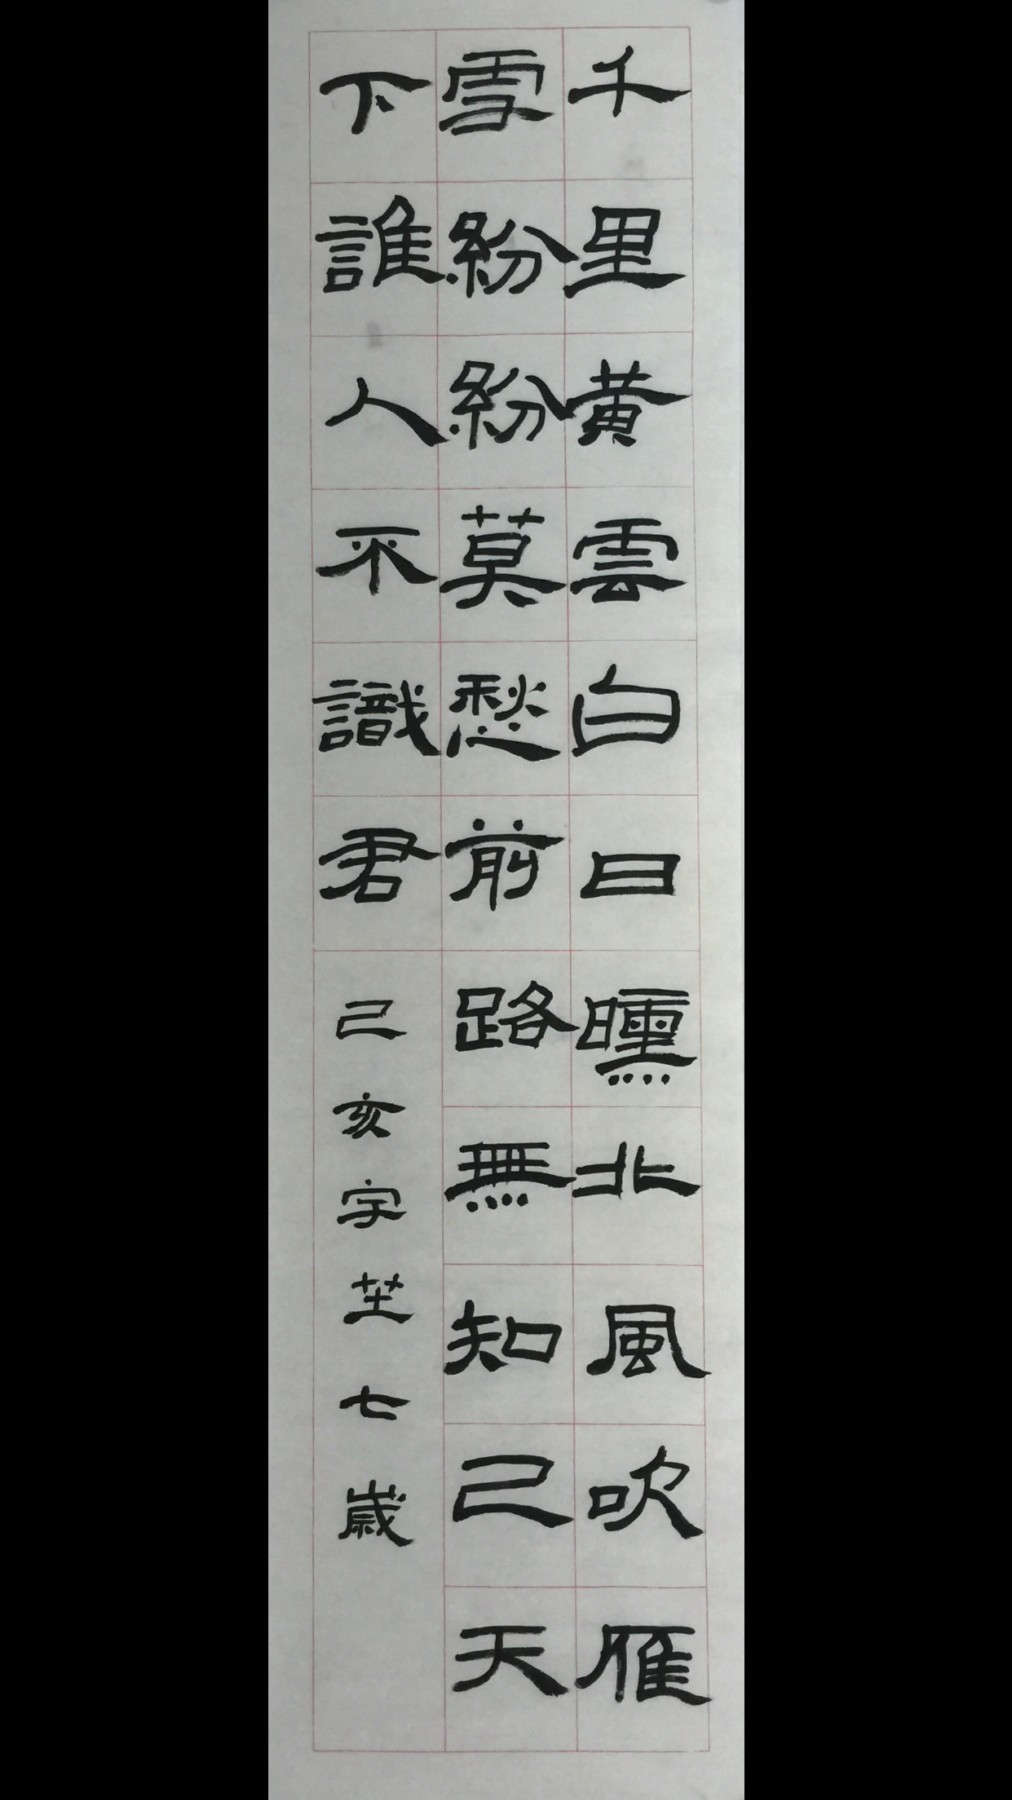 千里黄雲白日曛北風吹雁
雪紛紛莫愁前路無知己天
下誰人不識君
己亥宇芏七歲